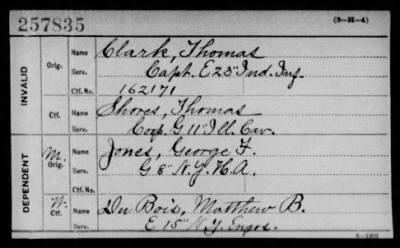 257835
(3-H-4)
INVALID
Orig.
Name Clark, Thomas
Serv. Capt. E 23" Ind. Inf.
Ctf. No. 162171
Ctf.
Name Shores, Thomas
Serv. Corp. G 11" Ill. Cav.
DEPENDENT
M. Orig.
Name Jones, George F.
Serv. G. 8" N.Y.H.A.
Ctf. No.
W. Ctf.
Name Du Bois, Matthew B.
Serv. E. 15" N.Y. Engrs.